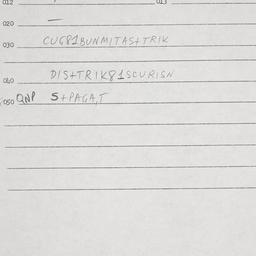 012 013
020 —
030 CUG81BUNMITAS+TRIK
040 DIS+TRIK81SCURISN
050 QNP S+PAGA,T